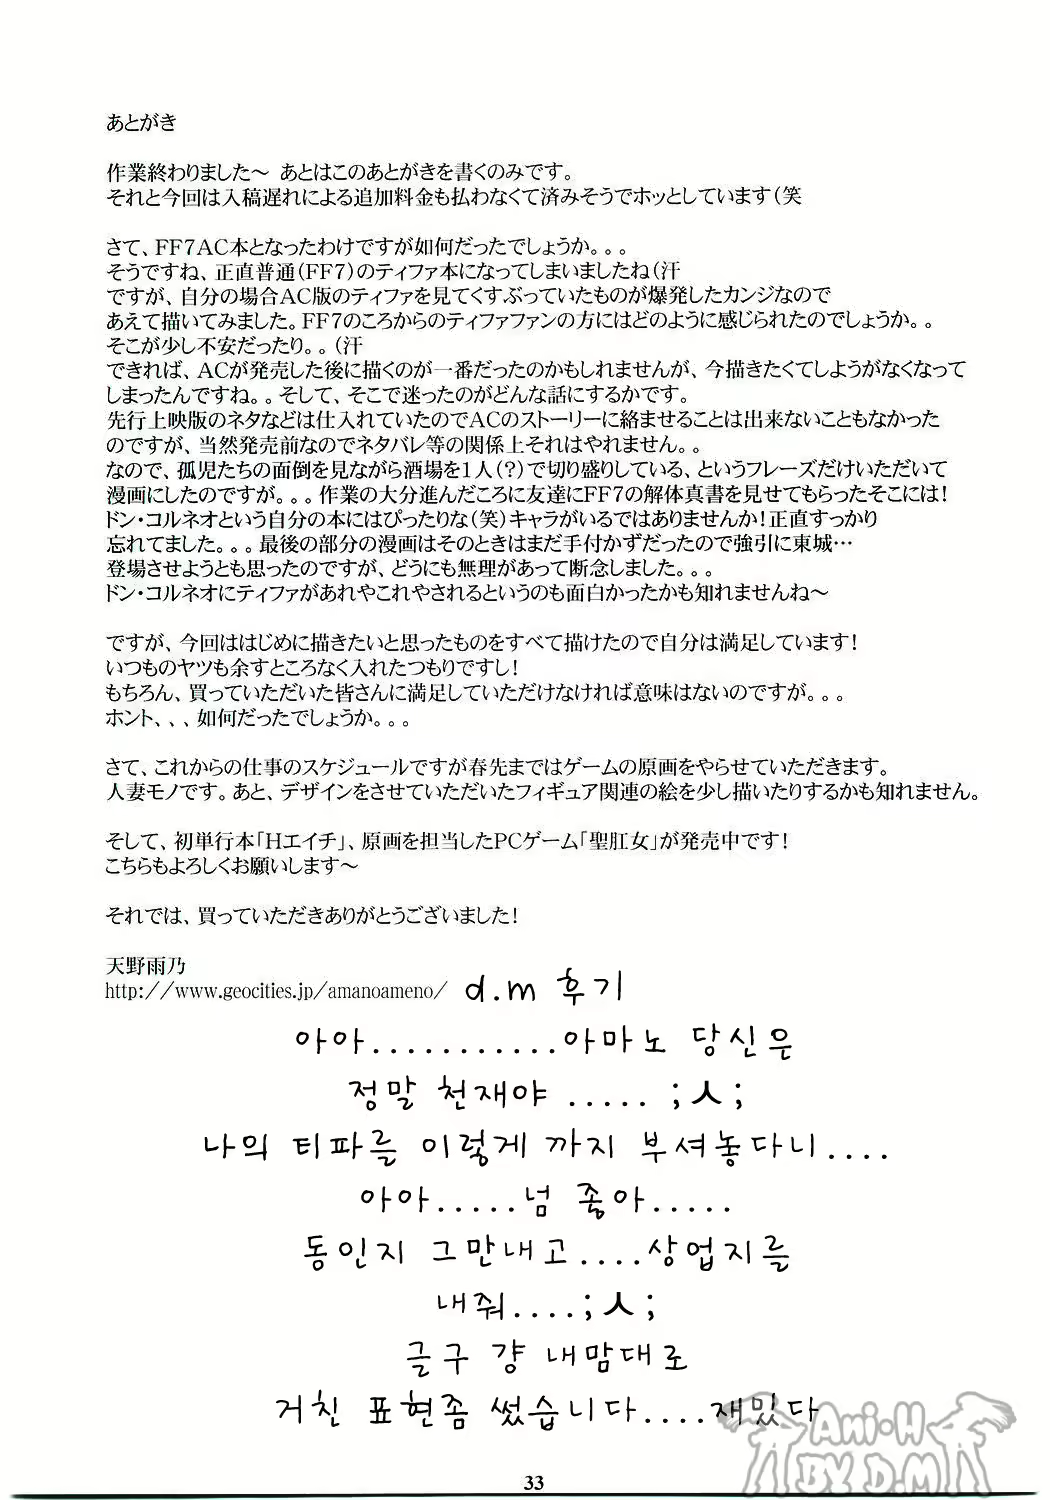 あとがき
作業終わりました～ あとはこのあとがきを書くのみです。
それと今回は入稿遅れによる追加料金も払わなくて済みそうでホッとしています（笑
さて、FF7AC本となったわけですが如何だったでしょうか。。。
そうですね、正直普通（FF7）のティファ本になってしまいましたね（汗
ですが、自分の場合AC版のティファを見てくすぶっていたものが爆発したカンジなので
あえて描いてみました。FF7のころからのティファファンの方にはどのように感じられたのでしょうか。。
そこが少し不安だったり。。（汗
できれば、ACが発売した後に描くのが一番だったのかもしれませんが、今描きたくてしようがなくなって
しまったんですね。。そして、そこで迷ったのがどんな話にするかです。
先行上映版のネタなどは仕入れていたのでACのストーリーに絡ませることは出来ないこともなかった
のですが、当然発売前なのでネタバレ等の関係上それはやれません。。
なので、孤児たちの面倒を見ながら酒場を1人（？）で切り盛りしている、というフレーズだけいただいて
漫画にしたのですが。。。作業の大分進んだころに友達にFF7の解体真書を見せてもらったそこには！
ドン・コルネオという自分の本にはぴったりな（笑）キャラがいるではありませんか！正直すっかり
忘れてました。。。最後の部分の漫画はそのときはまだ手付かずだったので強引に東城…
登場させようとも思ったのですが、どうにも無理があって断念しました。。。
ドン・コルネオにティファがあれやこれやされるというのも面白かったかも知れませんね～
ですが、今回ははじめに描きたいと思ったものをすべて描けたので自分は満足しています！
いつものヤツも余すところなく入れたつもりですし！
もちろん、買っていただいた皆さんに満足していただけなければ意味はないのですが。。。
ホント、、、如何だったでしょうか。。。
さて、これからの仕事のスケジュールですが春先まではゲームの原画をやらせていただきます。
人妻モノです。あと、デザインをさせていただいたフィギュア関連の絵を少し描いたりするかも知れません。
そして、初単行本「Hエイチ」、原画を担当したPCゲーム「聖肛女」が発売中です！
こちらもよろしくお願いします～
それでは、買っていただきありがとうございました！
天野雨乃
http://www.geocities.jp/amanoameno/
d.m 후기
아아...........아마노 당신은
정말 천재야 ..... ;人;
나의 티파를 이렇게 까지 부셔놓다니....
아아.....넘 좋아.....
동인지 그만내고....상업지를
내줘....;人;
글구 걍 내맘대로
거친 표현좀 썼습니다....재밌다
33
Ani·H
BY D.M